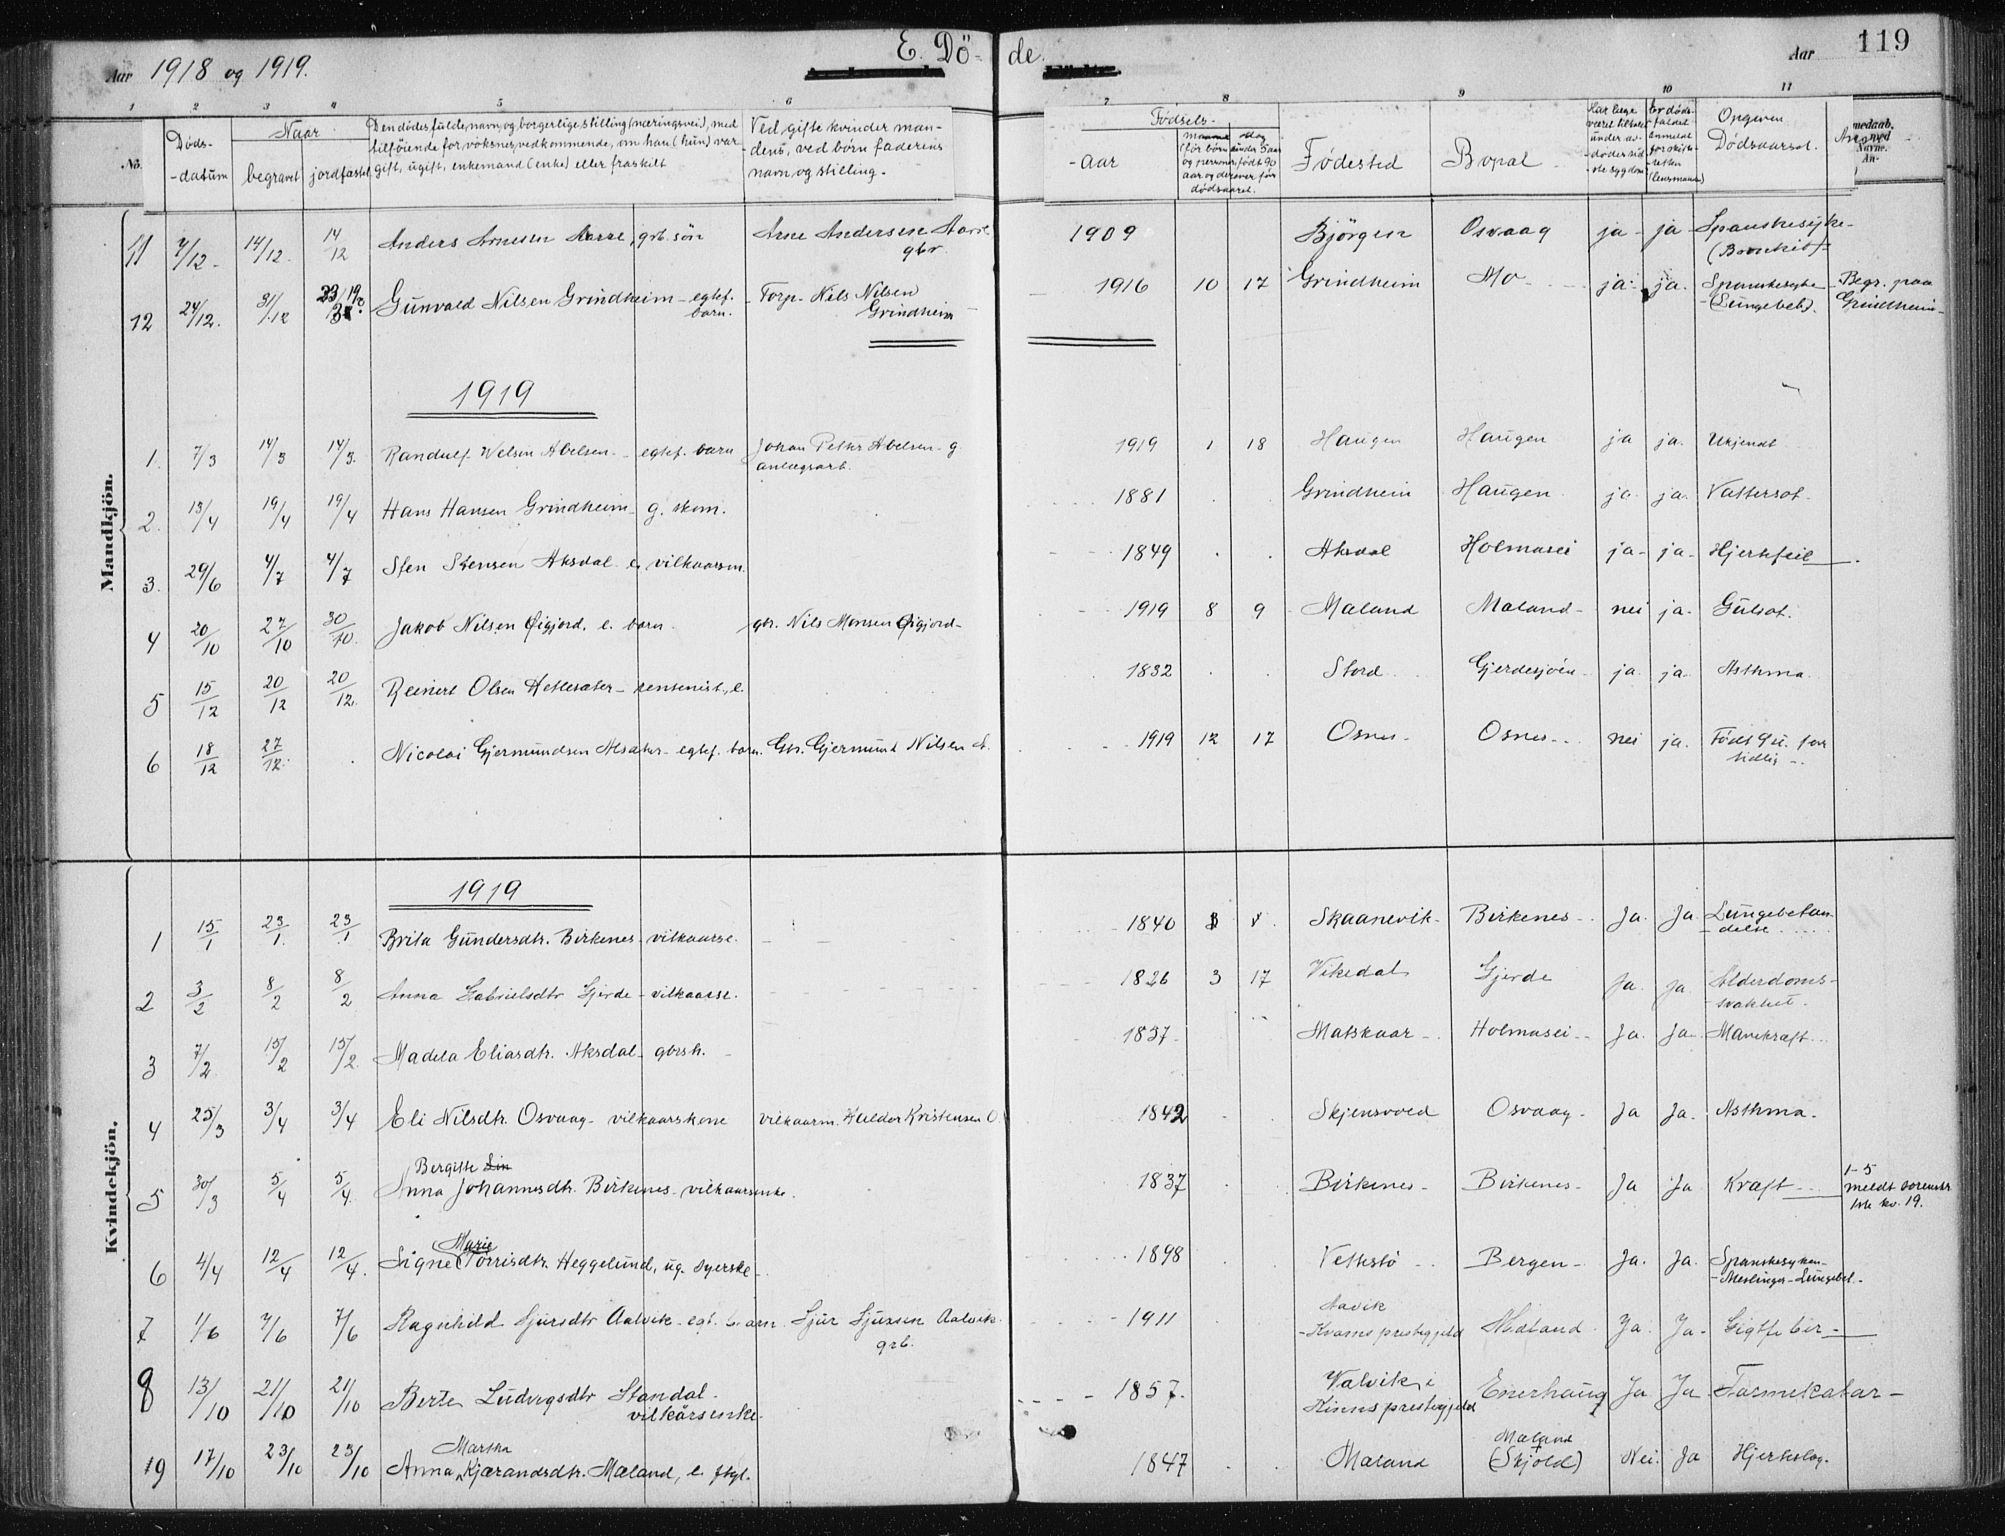 Aar 1918 og 1919. E. Dö- de. Aar 119
1 2 3 4 5 6 7 8 9 10 11
No. Døds- -datum Naar begravet jordfæstet
Den dødes fulde navn og borgerlige stilling (næringsvei), med
tilföiende for voksnes vedkommende, om han (hun) var
gift, ugift, enkemand (enke) eller fraskilt
Ved gifte kvinder man-
dens, ved börn faderens
navn og stilling.
Födsels-
-aar
Födested Bopæl Opgiven Dödsaarsak.
Mandkjön.
11 7/12 14/12 14/12 Anders Arnesen Aarre, grb. sön Arne Andersen Aarre gbr. 1909 Björgen Osvaag ja ja Spanskesyke (Bronkit)
12 24/12. 31/12 Gunvald Nilsen Grindheim - egtef. barn. Torp. Nils Nilsen Grindheim 1916 10 17 Grindheim Mo ja ja. Spanskesyke (Lungebet). Begr. paa Grindheim
1919
1. 7/3 14/3 14/3. Randulf Abelsen - egtef. barn Johan Peter Abelsen - g. anlægsarb. 1919 1 18 Haugen Haugen ja ja. Ukjendt
2. 13/4 19/4 19/4 Hans Hansen Grindheim g. skom. 1881 Grindheim Haugen ja ja. Vattersot.
3. 29/6 4/7 4/7 Sten Stensen Aksdal e. vilkaarsm. 1849 Aksdal Holmasei ja ja Hjertefeil
4 20/10 27/10 30/10. Jakob Nilsen Øigjord, e. barn. gbr. Nils Monsen Øigjord 1919 8 9 Maland Maland nei ja Gulsot.
5 15/12 20/12 20/12. Reinert Olsen Hettesæter - rentenist, e. 1832 Stord Gjerdesjöen ja ja. Asthma
6 18/12 27/12. Nicolai Gjermundsen Alsaker - egtef. barn. Gbr. Gjermund Nilsen A. 1919 12 17 Osnes Osnes nei ja. Födt 9 u. for tidlig
Kvindekjön.
1919
1 15/1 23/1. 23/1 Brita Gundersdtr. Birkenes vilkaarse. 1840 Skaanevik Birkenes Ja Ja Lungebetændelse
2 3/2 8/2 8/2 Anna Gabrielsdtr Gjerde - vilkaarse. 1826 3 17 Vikedal Gjerde Ja. ja Alderdomssvakhet.
3 7/2 15/2 15/2. Madela Eliasdtr. Aksdal 1837 Matskaar Holmasei Ja. Ja Mavekræft
4 25/3 3/4 3/4 Eli Nilsdtr. Osvaag - vilkaarskone vilkaarm. Haldor Kristensen O. 1842 Skjensvold Osvaag Ja Ja. Asthma.
5 30/3 5/4 5/4. Anna Bergitte Johannesdtr. Birkenes - vilkaarsenke. 1837 Birkenes Birkenes Ja Ja Kræft 1-5 meldt sorenskr. 1ste kv. 19.
6 4/4 12/4 12/4. Signe Marie Torrisdtr. Heggelund, ug. syerske 1898 Vettestö Bergen Ja. Ja. Spanskesyken - Meslinger - Lungebet.
7 1/6 7/6 7/6 Ragnhild Sjursdtr Aalvik - egt. barn Sjur Sjursen Aalvik grb. 1911 Aavik Kvams prestegjeld Midland Ja. Ja Gigtfeber
8 13/10 21/10 21/10 Berte Ludvigsdtr Standal. vilkårsenke. 1857. Valvik i Kinns prestegjeld Enerhaug Ja Ja Tarmekatar
19 17/10 23/10 23/10 Anna Martha Kjærandsdtr. Mæland, e. 1847 Mæland Mæland (Skjold) Nei. Ja Hjerteslag.